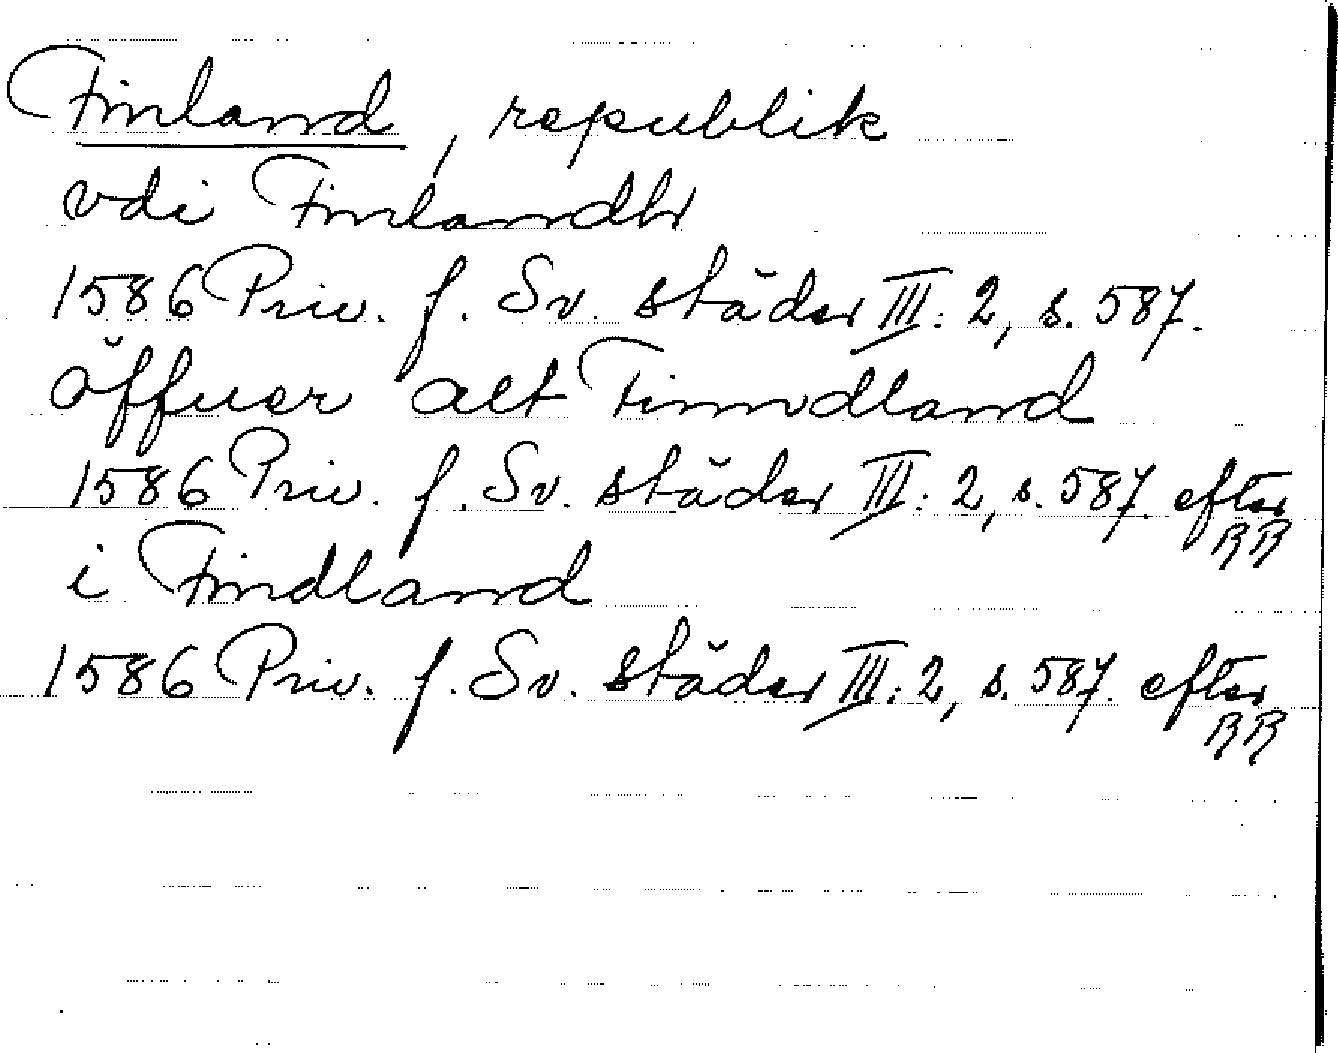 Finland, republik
vdi Finlandh
1586 Priv. f. Sv. städer III: 2, s. 587.
öffuer alt Finndland
1586 Priv. f. Sv. städer III: 2, s. 587. efter RR
i Findland
1586 Priv. f. Sv. städer III: 2, s. 587. efter RR